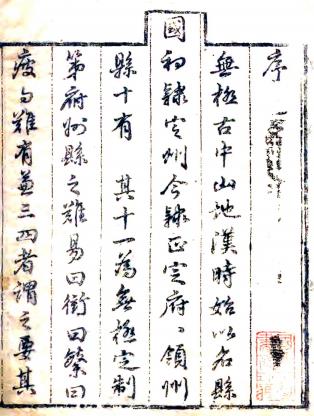 序
無極古中山地漢時始以名縣
國初隸定州今隸正定府〻領州
縣十有 其十一為無極定制
第府州縣之難易曰衝曰繁曰
疲曰難有兼三四者謂之要其